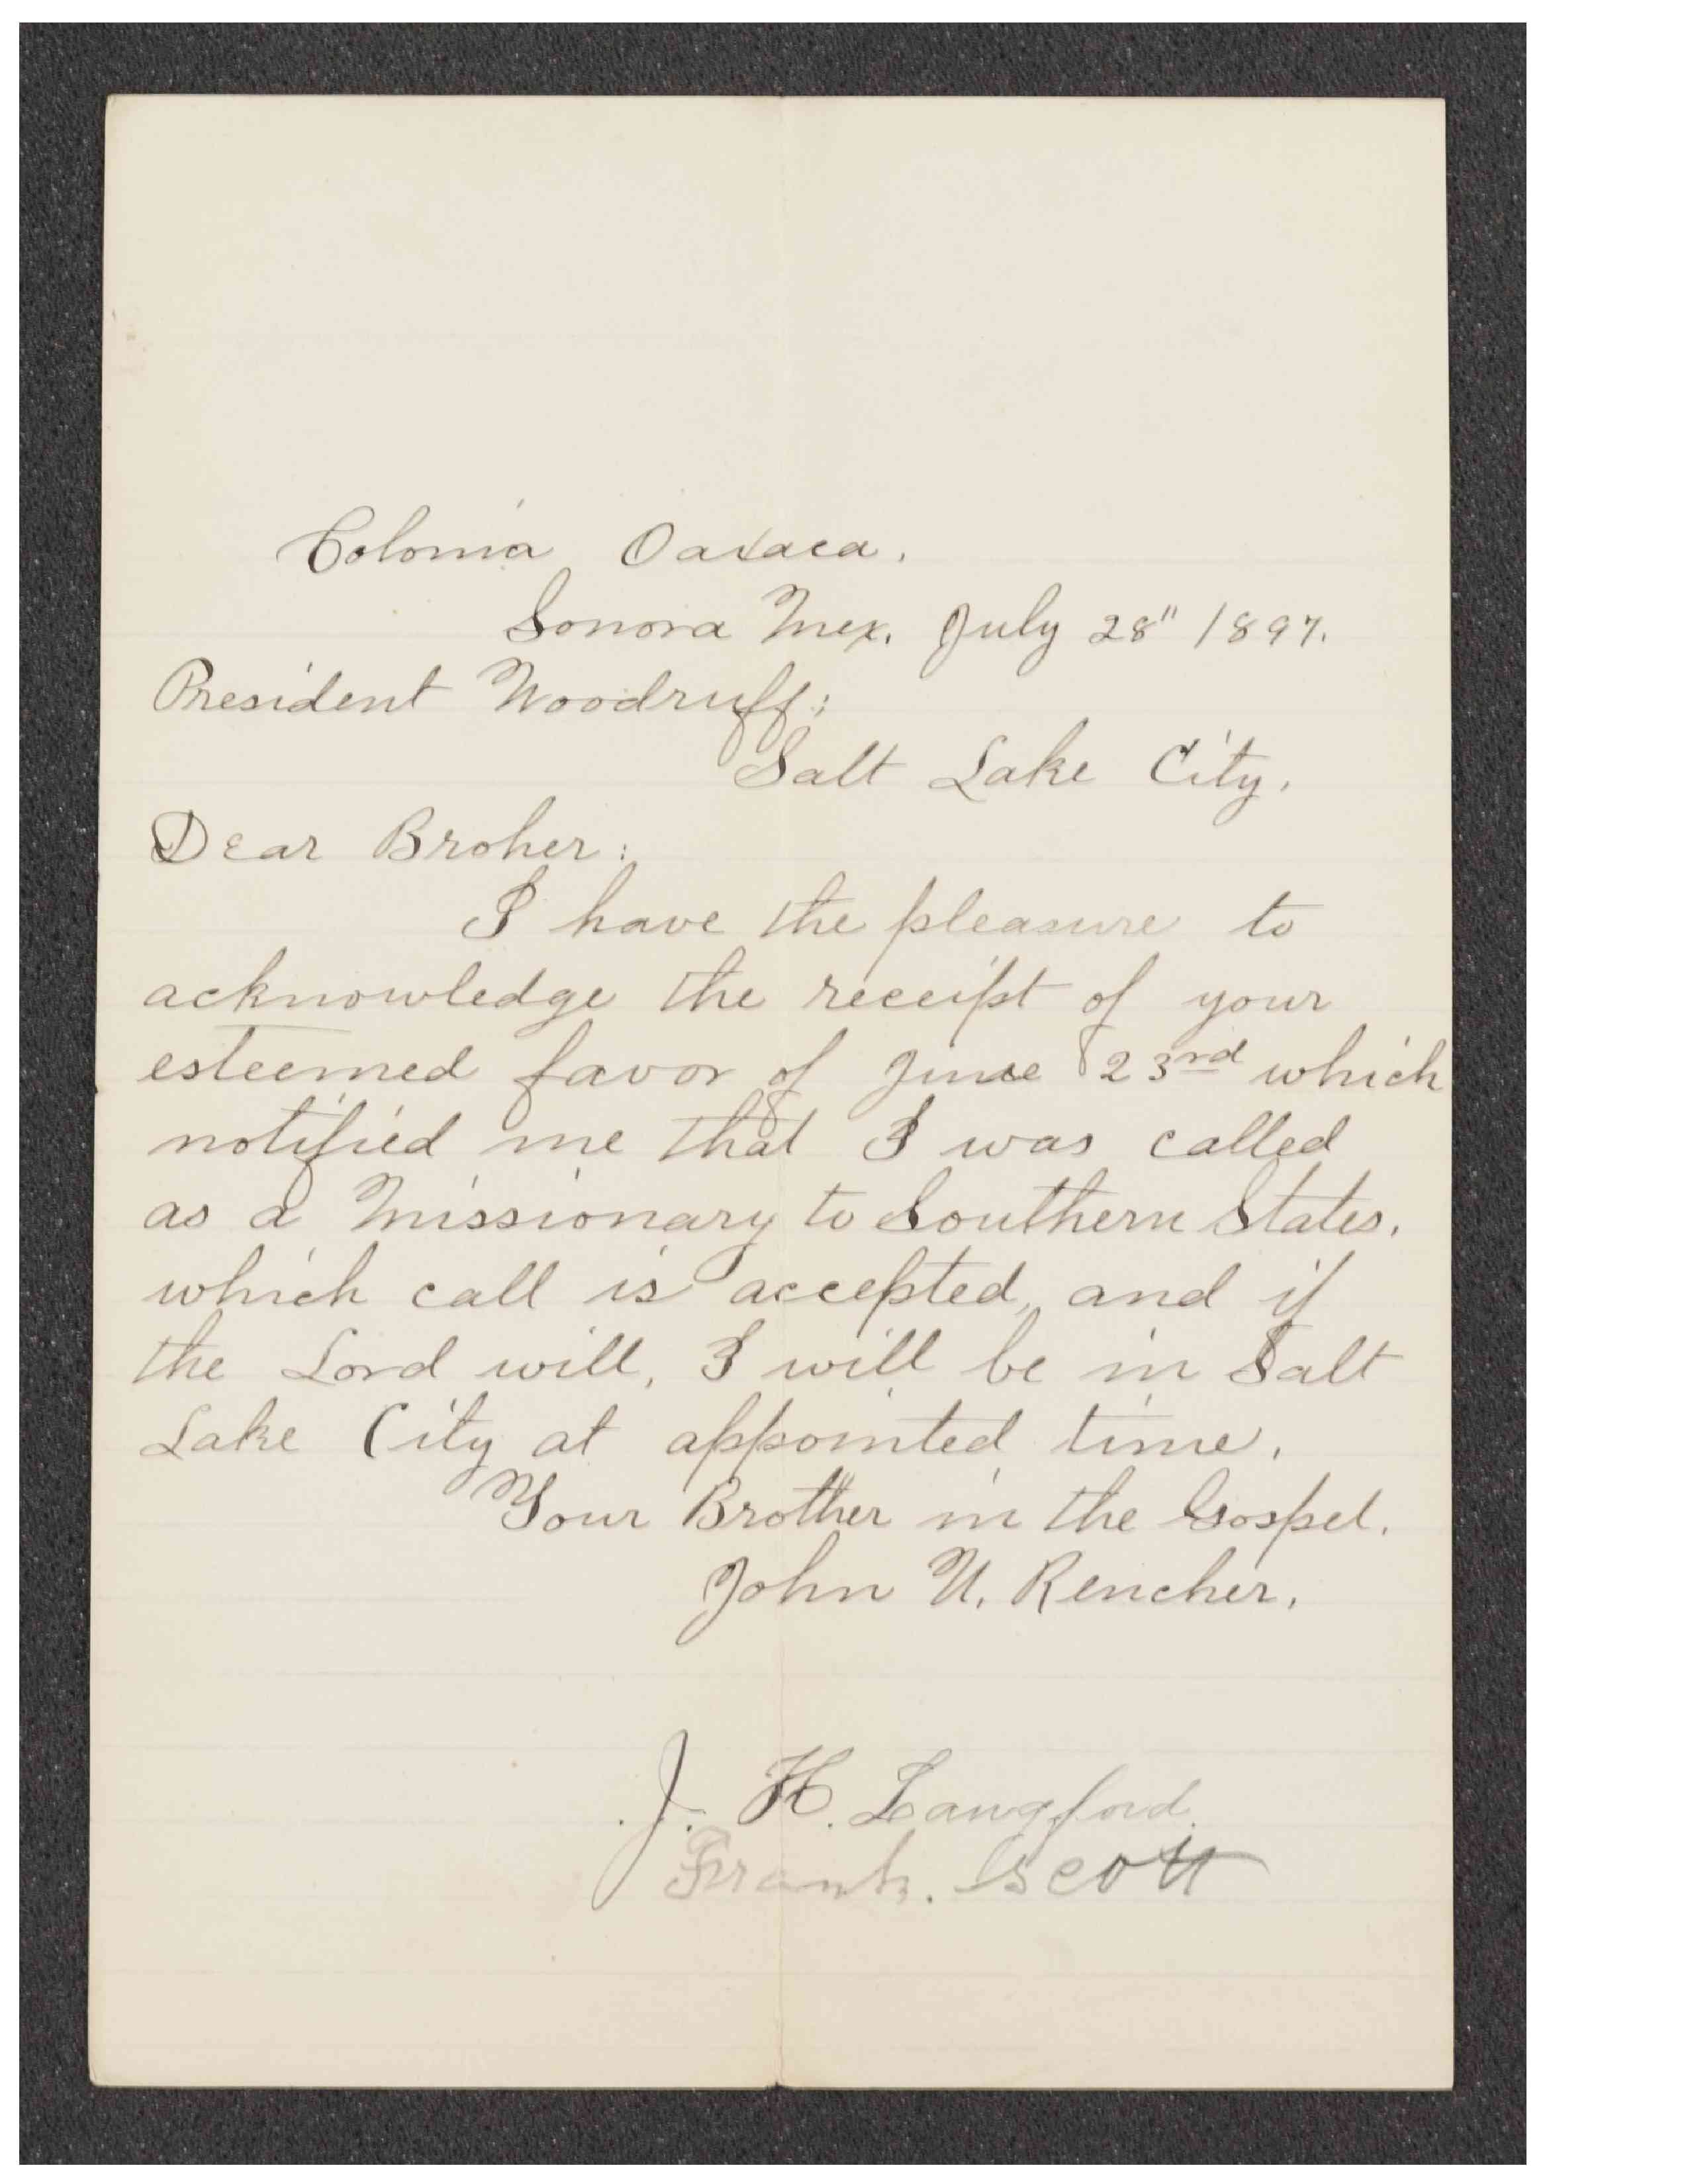 Colonia Oaxaca.
Sonora Mex. July 28" 1897.
President Woodruff;
Salt Lake City.
Dear Broher:
I have the pleasure to
acknowledge the receipt of your
esteemed favor of June 23rd which
notified me that I was called
as a Missionary to Southern States.
which call is accepted, and if
the Lord will, I will be in Salt
Lake City at appointed time.
Your Brother in the Gospel.
John U. Rencher.
J. H. Langford.
Frank. Scott